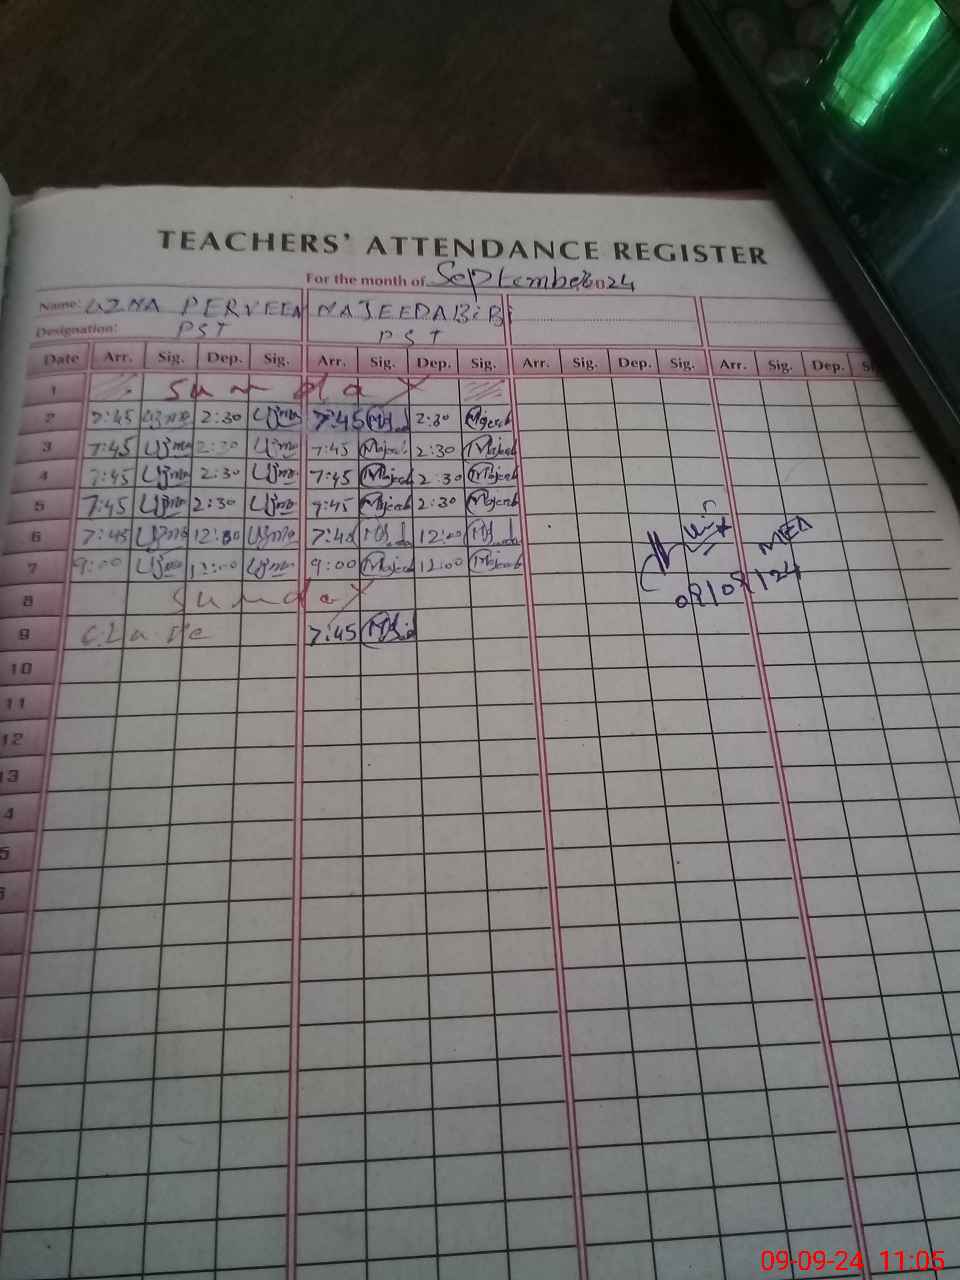 TEACHERS' ATTENDANCE REGISTER
For the month of September 2024
Name: UZMA PERVEEN NAJEEDA BiBi
Designation: PST PST
Date Arr. Sig. Dep. Sig. Arr. Sig. Dep. Sig. Arr. Sig. Dep. Sig. Arr. Sig. Dep.
1 Sunday
2 7:45 Uzma 2:30 Uzma 7:45 2:30
3 7:45 Uzma 2:30 Uzma 7:45 2:30
4 7:45 Uzma 2:30 Uzma 7:45 2:30
5 7:45 Uzma 2:30 Uzma 7:45 2:30
6 7:45 Uzma 12:00 Uzma 7:45 12:00
7 9:00 Uzma 12:00 Uzma 9:00 12:00
MEA
8 Sunday
9 7:45
10
11
12
13
4
5
09-09-24 11:05